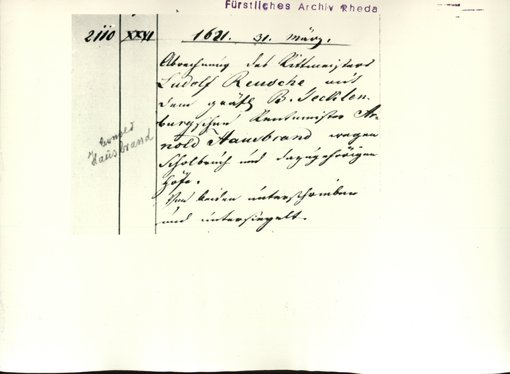 Fürstliches Archiv Rheda
2110 XXVI 1621. 31. März.
Abrechnung des Rittmeisters
Ludolf Reusche mit
dem gräfl. B. Tecklen-
burgschen Rentmeister Ar-
nold Hausbrand wegen
Scholbruch und dazugehörigen
Höfe.
Von beiden unterschrieben
und untersiegelt.
Hausbrand